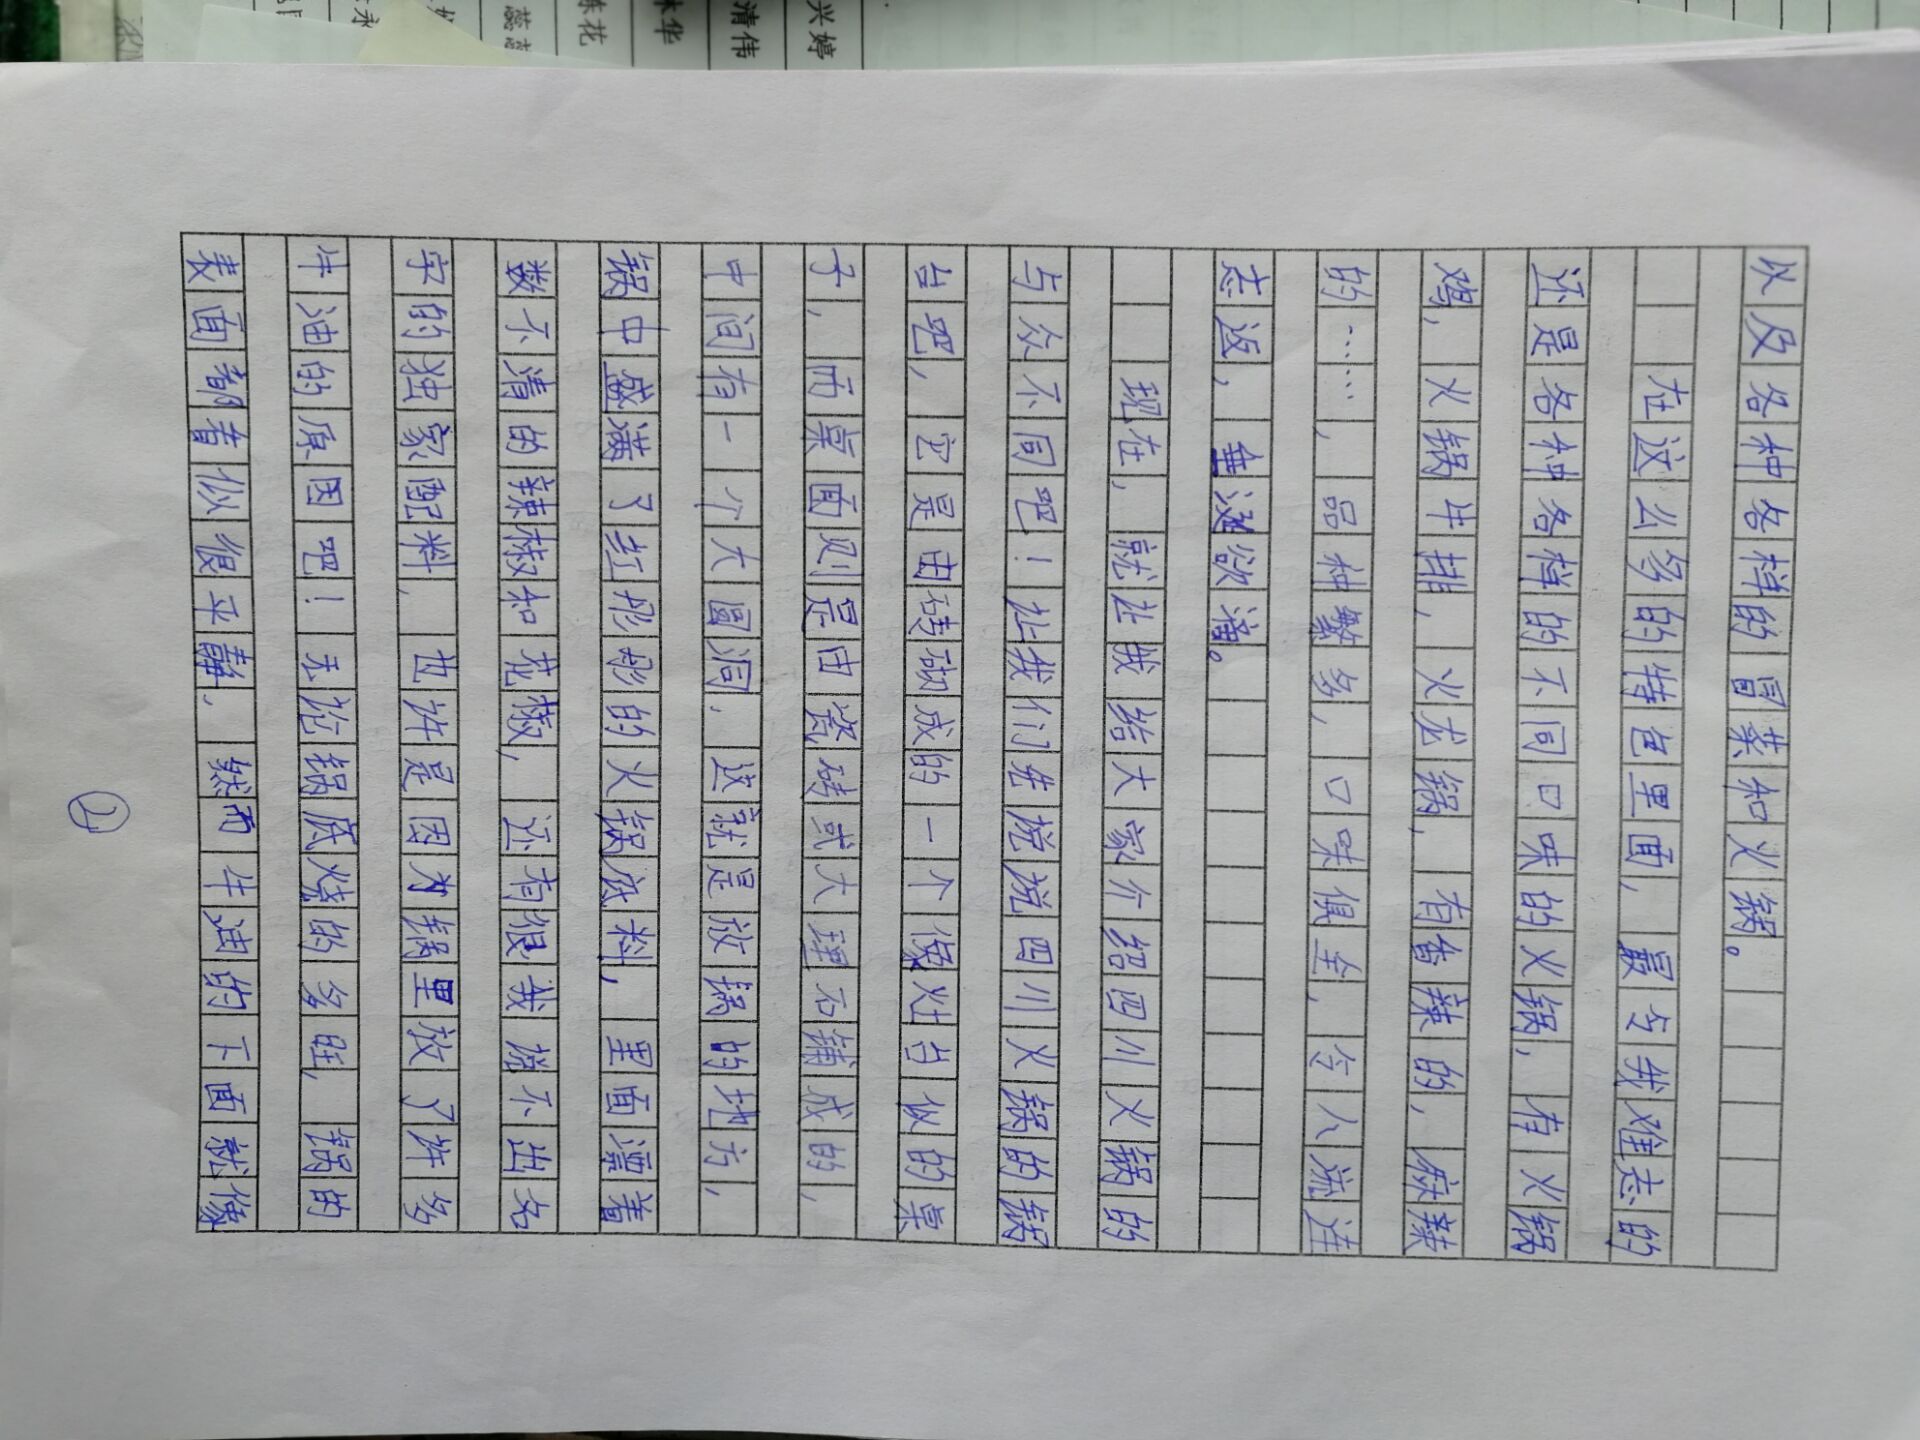 以及各种各样的冒菜和火锅。
在这么多的特色里面，最令我难忘的
还是各种各样的不同口味的火锅，有火锅
鸡，火锅牛排，火龙锅，有香辣的，麻辣
的……，品种繁多，口味俱全，令人流连
志返，垂涎欲滴。
现在，就让我给大家介绍四川火锅的
与众不同吧！让我们先说说四川火锅的锅
台吧，它是由砖砌成的一个像灶台似的桌
子，而桌面则是由瓷砖或大理石铺成的，
中间有一个大圆洞，这就是放锅的地方，
锅中盛满了红彤彤的火锅底料，里面漂着
数不清的辣椒和花椒，还有很我说不出名
字的独家配料，也许是因为锅里放了许多
牛油的原因吧！无论锅底烧的多旺，锅的
表面都看似很平静，然而牛油的下面就像
②
兴婷
清伟
林华
陈花